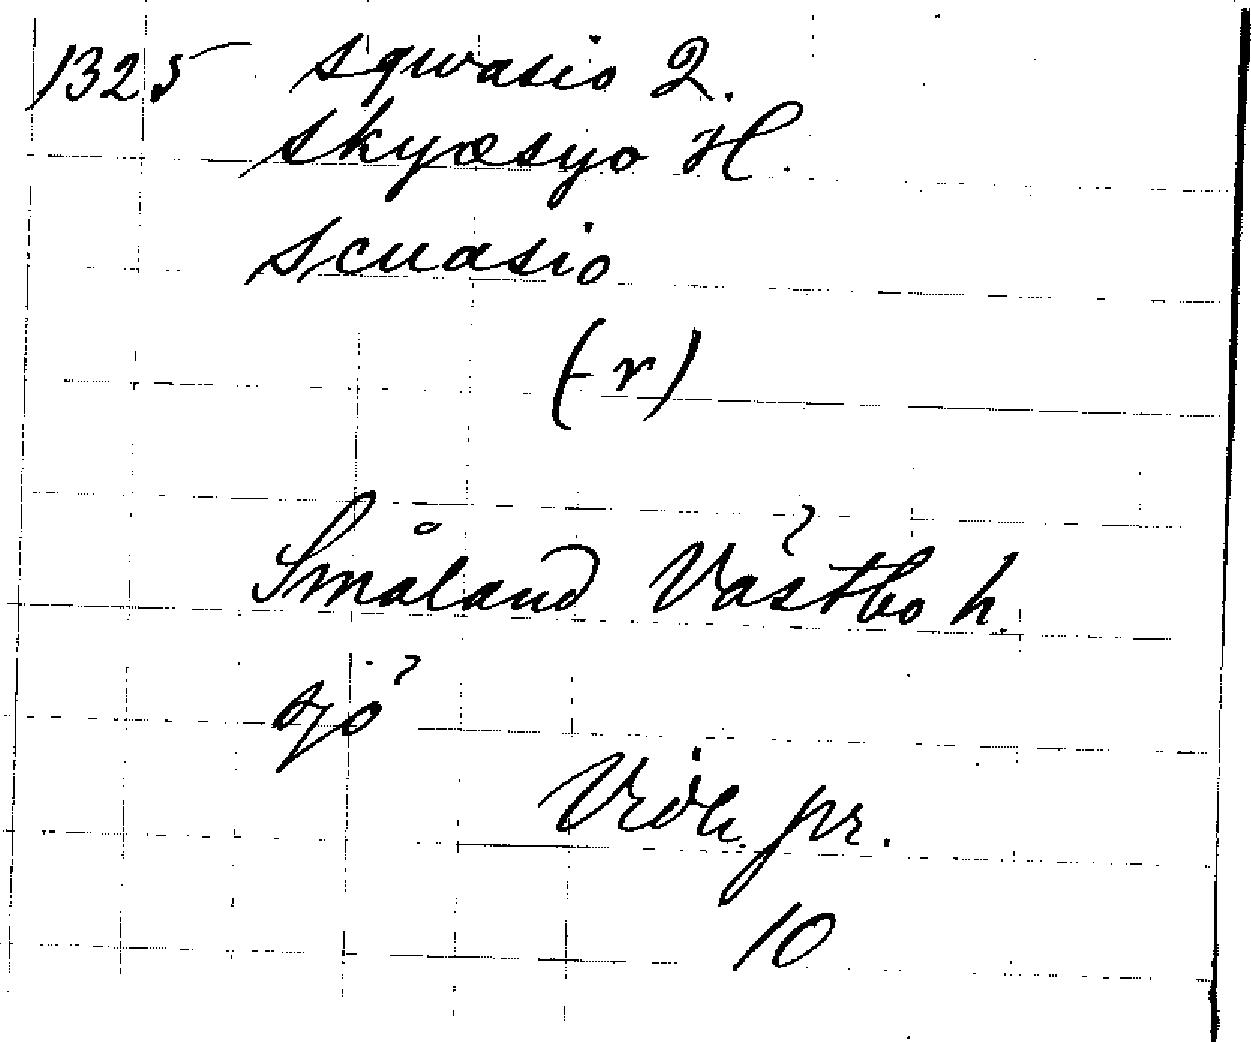 1325 sqwasio 2.
skyæsyo H.
scuasio
(-r)
Småland Västbo h.
sjö
pr.
10